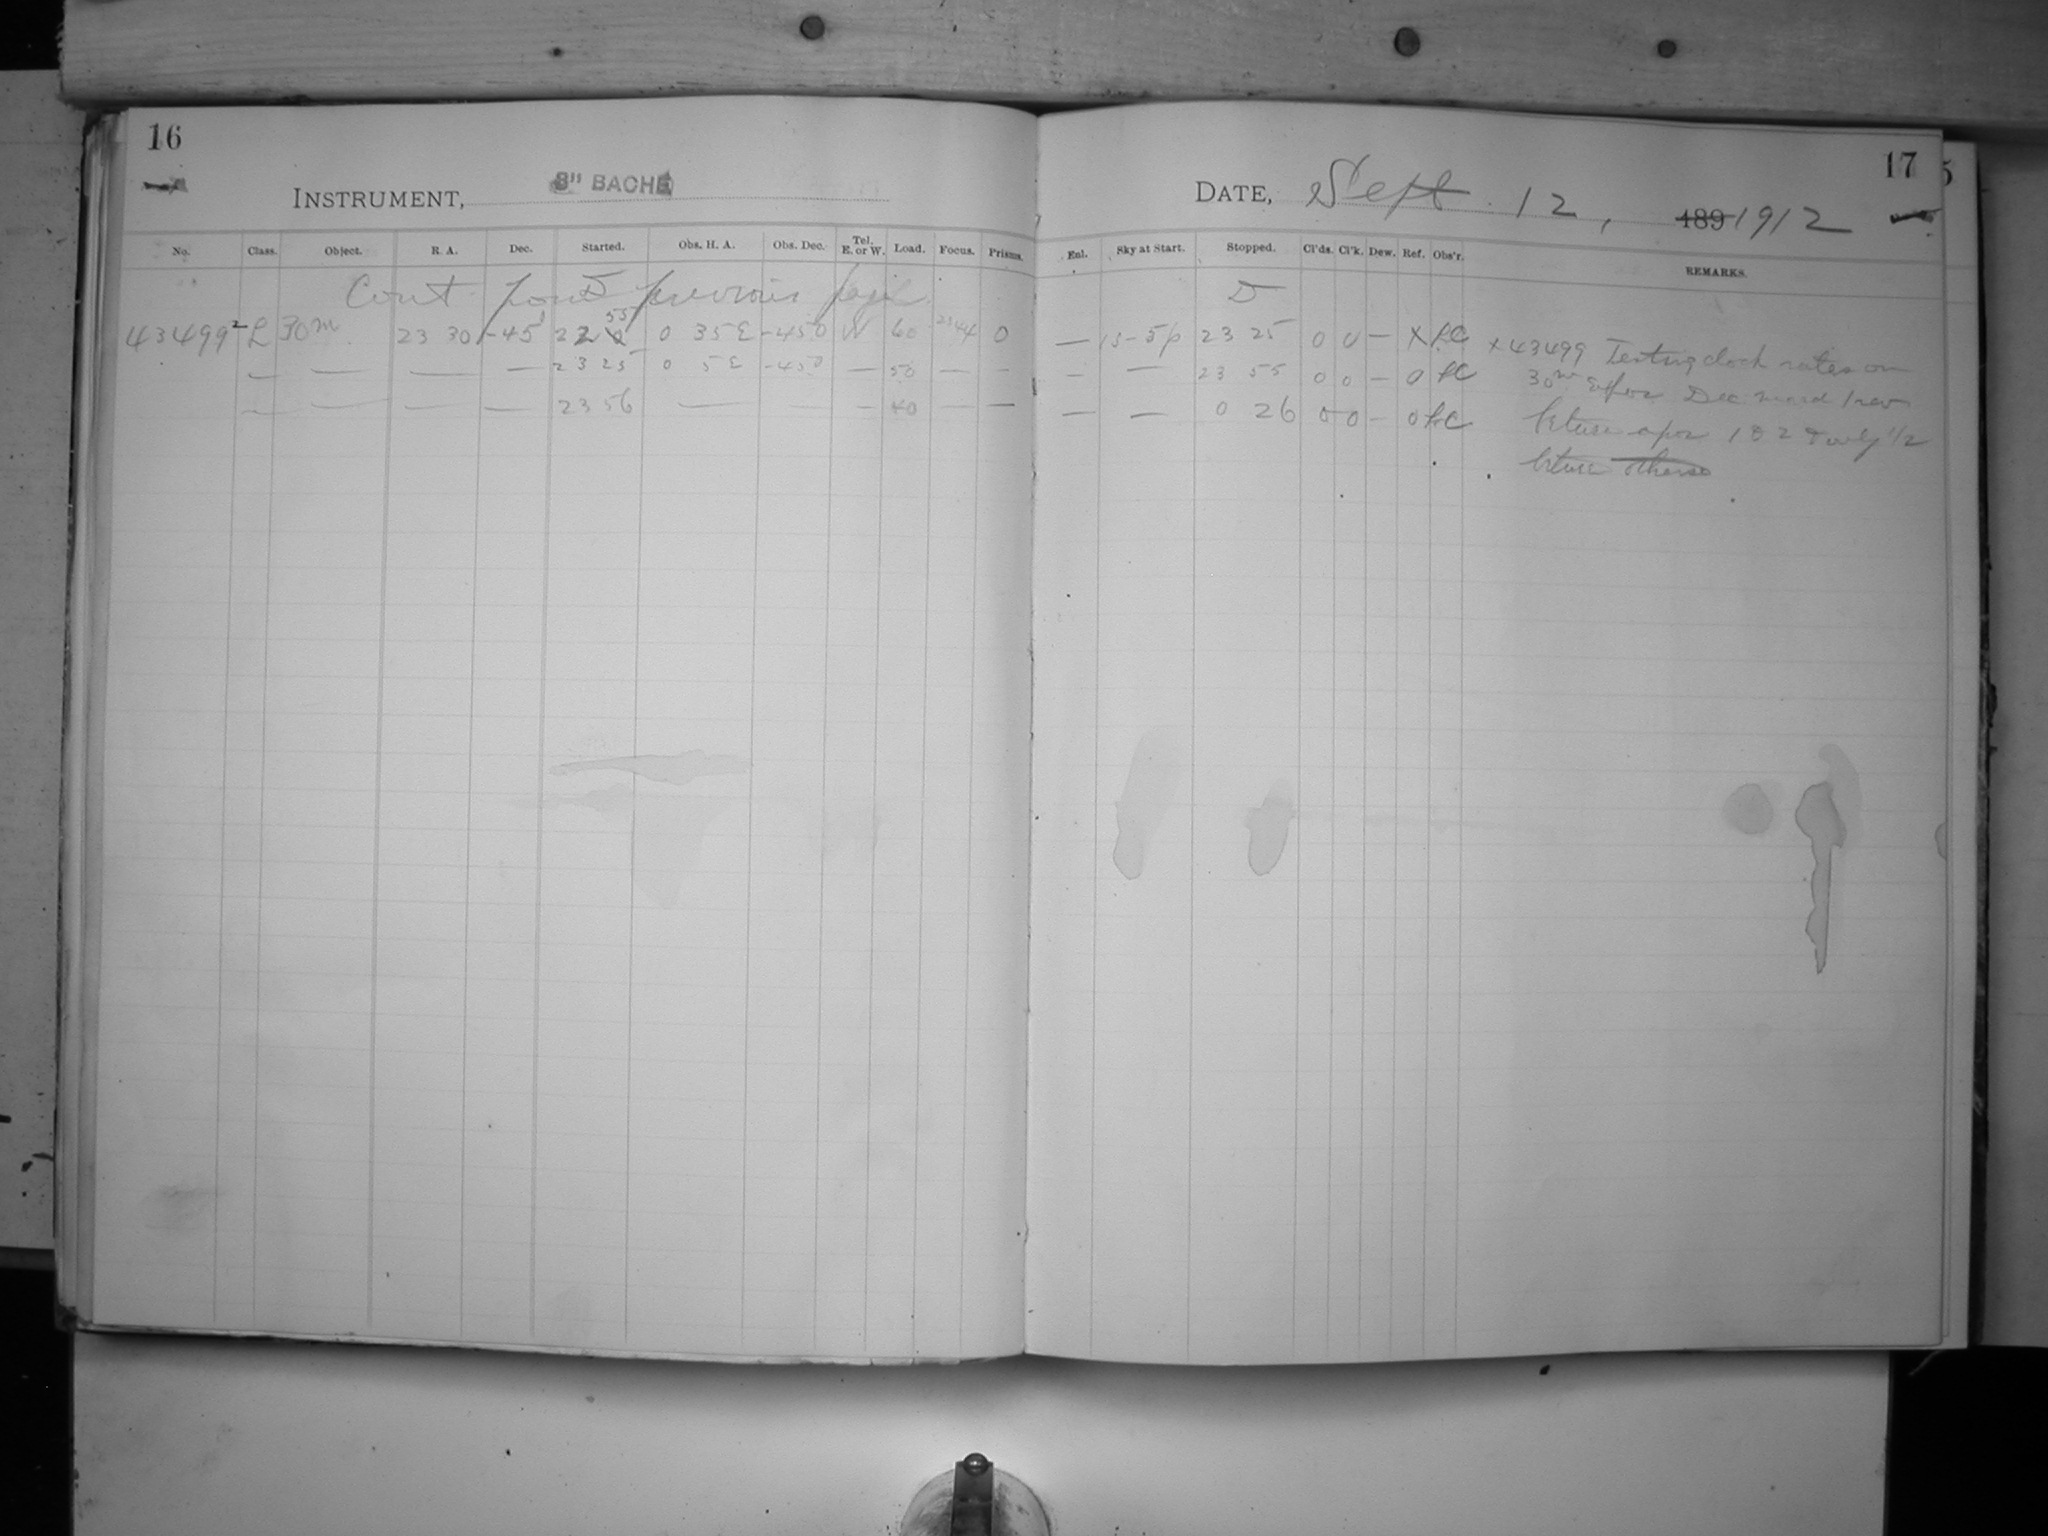 16
INSTRUMENT, 8" BACHE
No. Class. Object. R. A. Dec. Started. Obs. H. A. Obs. Dec. Tel. E. or W. Load. Focus. Prisms.
Cont from previous page
43499 L 30m 23 30 -45 22 55 0 35E -45 0 W 60 0
— — — — 23 25 0 5E -45 0 — 50 — —
— — — — 23 56 — — — 40 — —
17
DATE, Sept. 12, 189 1912
Enl. Sky at Start. Stopped. Cl'ds. Cl'k. Dew. Ref. Obs'r. REMARKS.
D
— 23 25 0 0 — X x 43499 Testing clock rates on
— — 23 55 0 0 — 0 30m Dec
— — 0 26 0 0 — 0 1 & 2 1/2
5